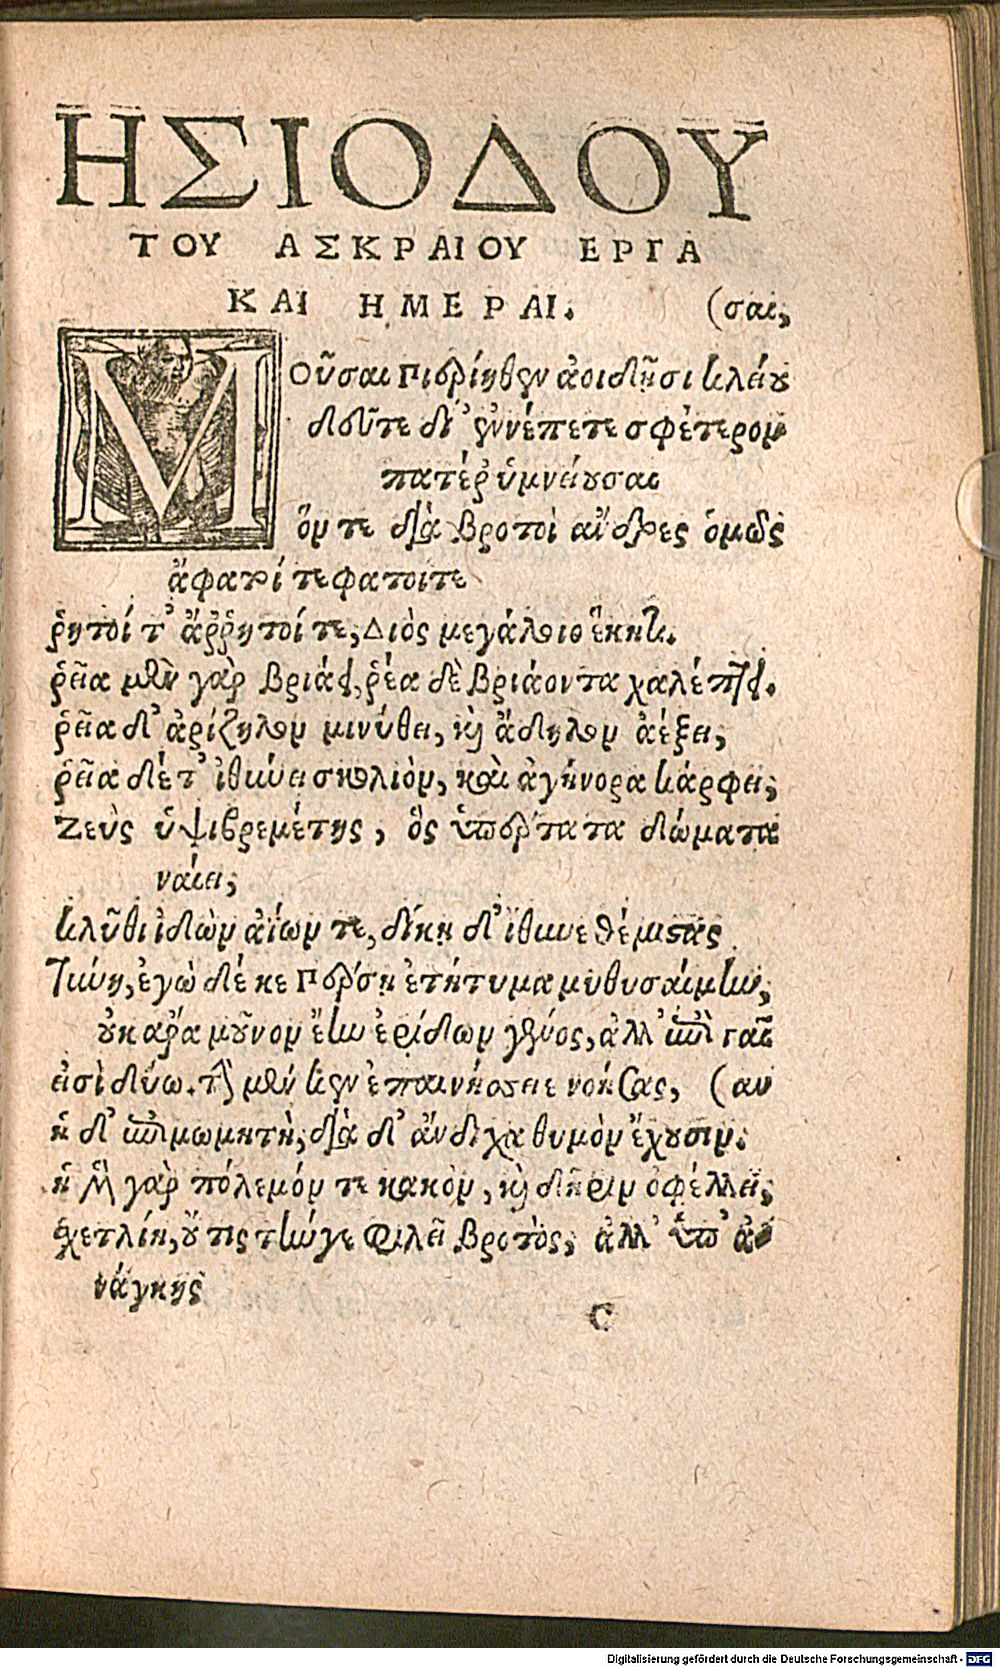 ΗΣΙΟΔΟΥ
ΤΟΥ ΑΣΚΡΑΙΟΥ ΕΡΓΑ
ΚΑΙ ΗΜΕΡΑΙ. (σαι,
ΜΟῦσαι Πιερίηθεν ἀοιδῇσι κλείου
δεῦτε δὴ ἐννέπετε σφέτερον
πατέρ' ὑμνείουσαι
ὅν τε διὰ βροτοὶ ἄνδρες ὁμῶς
ἄφατοί τε φατοίτε
ῥητοί τ' ἄῤῥητοί τε, Διὸς μεγάλοιο ἕκητι.
ῥεῖα μὲν γὰρ βριάει, ῥέα δὲ βριάοντα χαλέπτει.
ῥεῖα δ' ἀρίζηλον μινύθει, καὶ ἄδηλον ἀέξει,
ῥεῖα δέ τ' ἰθύνει σκολιὸν, καὶ ἀγήνορα κάρφει,
Ζεὺς ὑψιβρεμέτης, ὃς ὑπέρτατα δώματα
ναίει,
κλῦθι ἰδὼν ἀΐων τε, δίκῃ δ' ἴθυνε θέμιστας
Τύνη, ἐγὼ δέ κε Πέρσῃ ἐτήτυμα μυθυσαίμην,
οὐκ ἄρα μοῦνον ἔην ἐρίδων γένος, ἀλλ' ἐπὶ γαῖ
εἰσὶ δύω. τὴν μέν κεν ἐπαινήσειε νοήσας, (αν
ἡ δ' ἐπιμωμητὴ, διὰ δ' ἄνδιχα θυμὸν ἔχουσιν.
ἡ μὲν γὰρ πόλεμόν τε κακὸν, καὶ δῆριν ὀφέλλει,
σχετλίη, οὔ τις τήνγε φιλεῖ βροτὸς, ἀλλ' ὑπ' ἀ
νάγκης
C
Digitalisierung gefördert durch die Deutsche Forschungsgemeinschaft - DFG